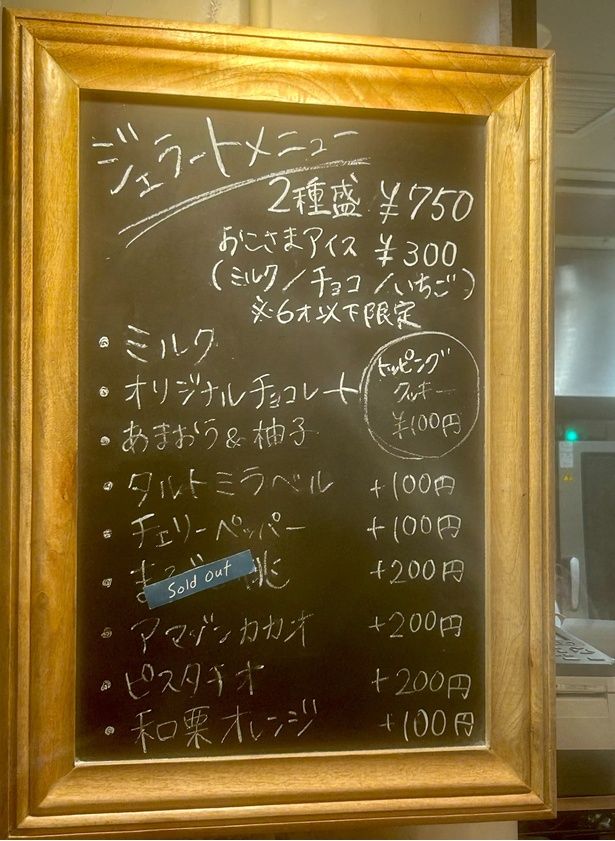 ジェラートメニュー
2種盛 ¥750
おこさまアイス ¥300
(ミルク/チョコ/いちご)
※6才以下限定
・ミルク
・オリジナルチョコレート
・あまおう&柚子
トッピング
クッキー
¥100円
・タルトミラベル +100円
・チェリーペッパー +100円
・まる 桃 +200円
Sold out
・アマゾンカカオ +200円
・ピスタチオ +200円
・和栗オレンジ +100円